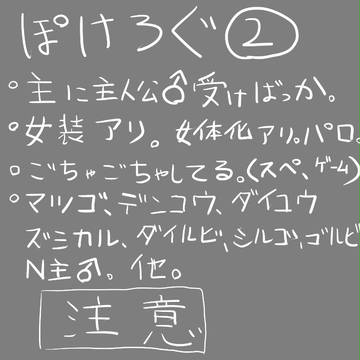 ぽけろぐ②
○主に主人公♂受けばっか。
○女装アリ。女体化アリ。パロ。
○ごちゃごちゃしてる。(スペ、ゲーム)
○マツゴ、デンコウ、ダイユウ
ズミカル、ダイルビ、シルゴ、ゴルビ
N主♂。他。
注意